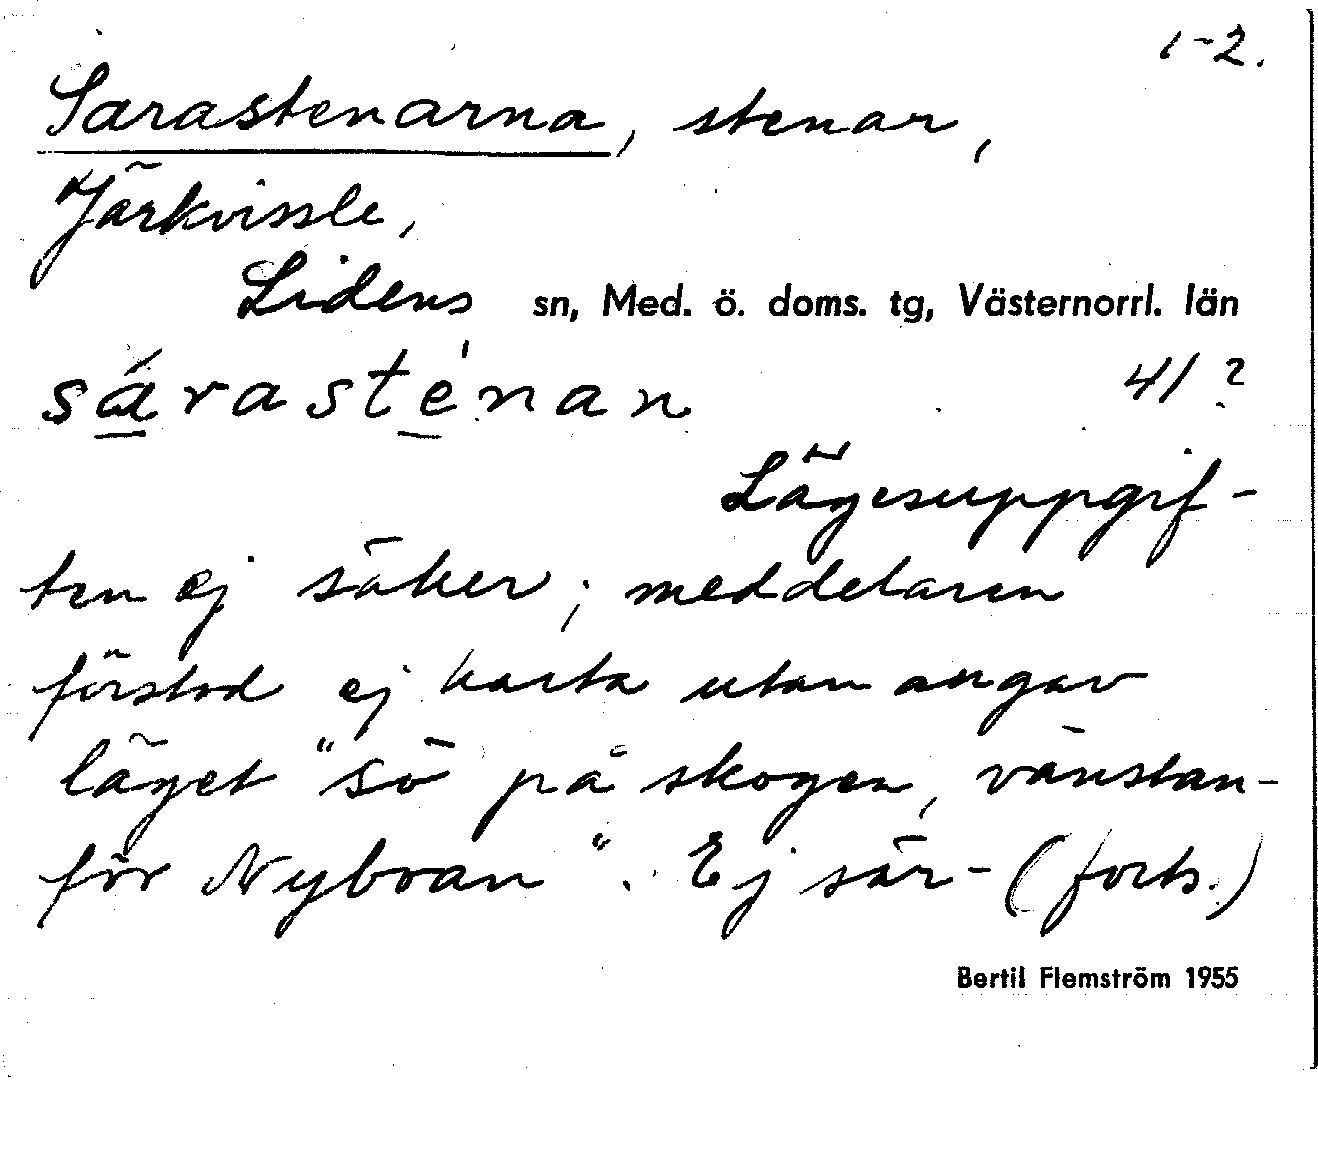 1-2.
Sarastenarna, stenar,
Järkvissle,
Lidens sn, Med. ö. doms. tg, Västernorrl. län
sárasténan 41?
Lägesuppgif-
ten ej säker; meddelaren
förstod ej karta utan angav
läget "sö på skogen, vänstan-
för Nyboan". Ej sär- (forts.)
Bertil Flemström 1955